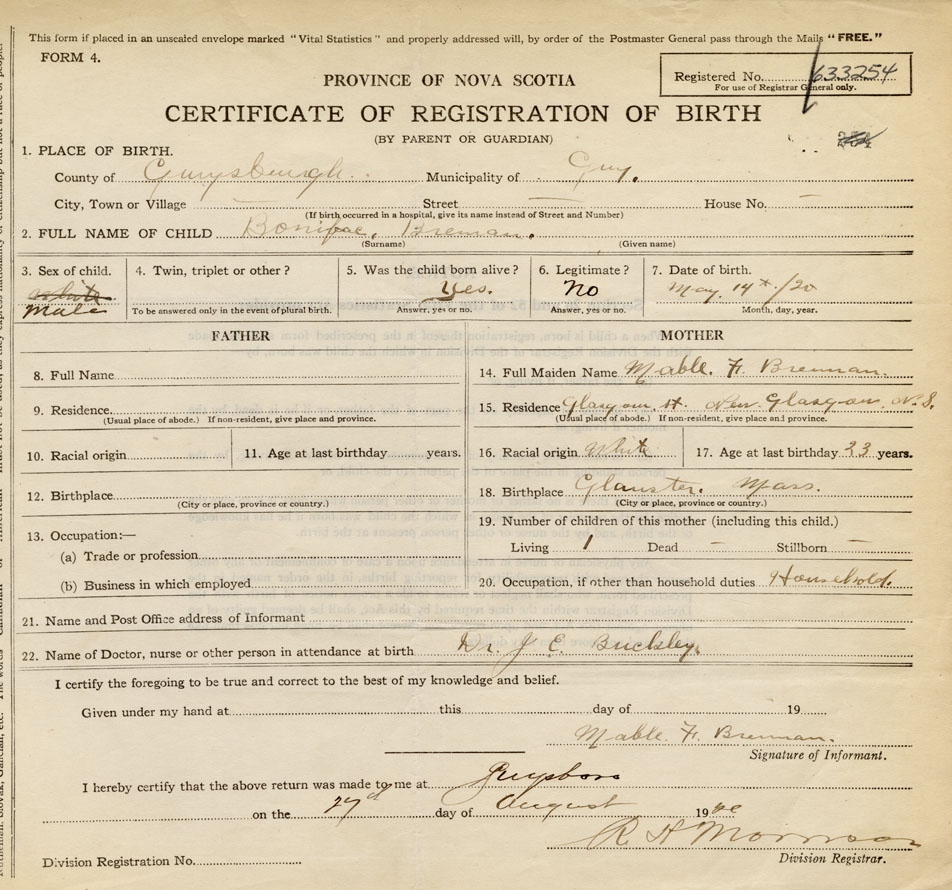 This form if placed in an unsealed envelope marked "Vital Statistics" and properly addressed will, by order of the Postmaster General pass through the Mails "FREE."
FORM 4.
Registered No. 633254
For use of Registrar General only.
PROVINCE OF NOVA SCOTIA
CERTIFICATE OF REGISTRATION OF BIRTH
(BY PARENT OR GUARDIAN)
1. PLACE OF BIRTH.
County of Guysburgh. Municipality of Guy.
City, Town or Village — Street — House No. —
(If birth occurred in a hospital, give its name instead of Street and Number)
2. FULL NAME OF CHILD Bonifac, Brennan.
(Surname) (Given name)
3. Sex of child. 4. Twin, triplet or other? 5. Was the child born alive? 6. Legitimate? 7. Date of birth.
white Yes. No May. 14th /20
Male To be answered only in the event of plural birth. Answer, yes or no. Answer, yes or no. Month, day, year.
FATHER MOTHER
8. Full Name 14. Full Maiden Name Mable. F. Brennan.
9. Residence. 15. Residence Glasgow. St. New. Glasgow. N.S.
(Usual place of abode.) If non-resident, give place and province. (Usual place of abode.) If non-resident, give place and province.
10. Racial origin 11. Age at last birthday years. 16. Racial origin White 17. Age at last birthday 23 years.
12. Birthplace 18. Birthplace Glauster. Mass.
(City or place, province or country.) (City or place, province or country.)
13. Occupation:— 19. Number of children of this mother (including this child.)
(a) Trade or profession Living 1 Dead — Stillborn —
(b) Business in which employed 20. Occupation, if other than household duties Household.
21. Name and Post Office address of Informant
22. Name of Doctor, nurse or other person in attendance at birth Dr. J. E. Buckley.
I certify the foregoing to be true and correct to the best of my knowledge and belief.
Given under my hand at this day of 19
Mable. F. Brennan.
Signature of Informant.
I hereby certify that the above return was made to me at Guysboro
on the 27d day of August 19
R H Morrison
Division Registration No. Division Registrar.